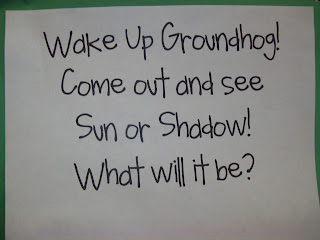 Wake Up Groundhog!
Come out and see
Sun or Shadow!
What will it be?